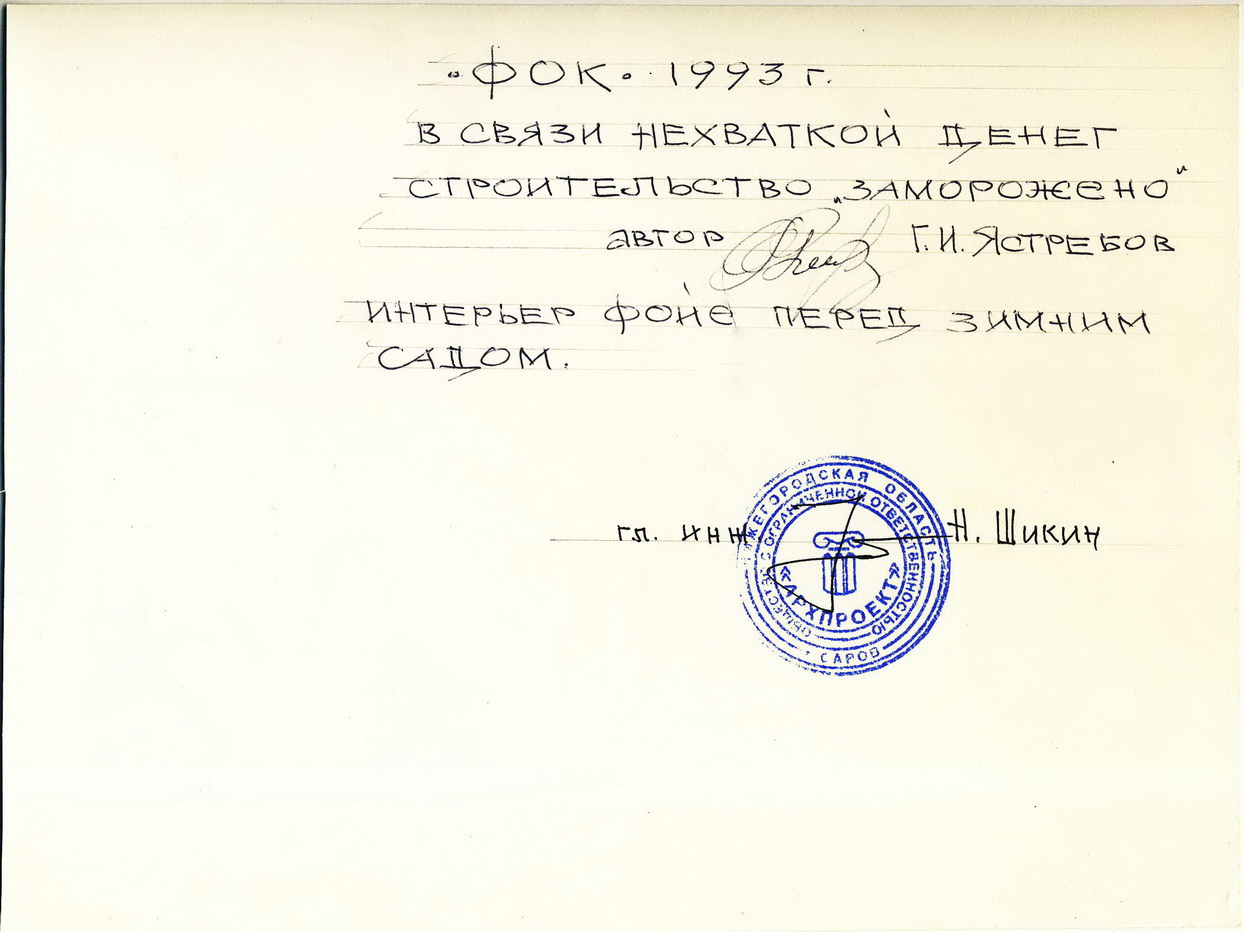 "ФОК" 1993 г.
В СВЯЗИ НЕХВАТКОЙ ДЕНЕГ
СТРОИТЕЛЬСТВО „ЗАМОРОЖЕНО"
автор Г.И. ЯСТРЕБОВ
ИНТЕРЬЕР ФОЙЕ ПЕРЕД ЗИМНИМ
САДОМ.
гл. инж Н. Шикин
НИЖЕГОРОДСКАЯ ОБЛАСТЬ
ОБЩЕСТВО С ОГРАНИЧЕННОЙ ОТВЕТСТВЕННОСТЬЮ
«АРХПРОЕКТ»
г САРОВ